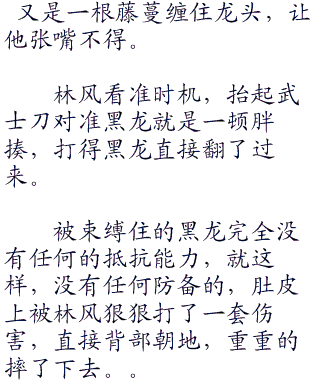 又是一根藤蔓缠住龙头，让
他张嘴不得。
林风看准时机，抬起武
士刀对准黑龙就是一顿胖
揍，打得黑龙直接翻了过
来。
被束缚住的黑龙完全没
有任何的抵抗能力，就这
样，没有任何防备的，肚皮
上被林风狠狠打了一套伤
害，直接背部朝地，重重的
摔了下去。。